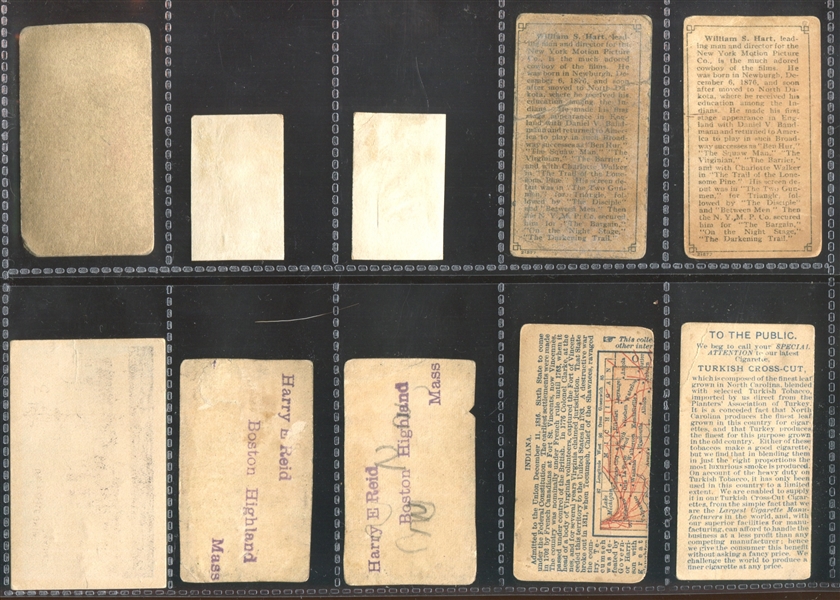 William S. Hart, lead-
ing man and director for the
New York Motion Picture
Co., is the much adored
cowboy of the films. He
was born in Newburgh, De-
cember 6, 1876, and soon
after moved to North Da-
kota, where he received his
education among the In-
dians. He made his first
stage appearance in Eng-
land with Daniel V. Band-
mann and returned to Amer-
ica to play in such Broad-
way successes as "Ben Hur,"
"The Squaw Man," "The
Virginian," "The Barrier,"
and with Charlotte Walker
in "The Trail of the Lone-
some Pine." His screen de-
but was in "The Two Gun-
men," for Triangle, fol-
lowed by "The Disciple"
and "Between Men." Then
the N. Y. M. P. Co. secured
him for "The Bargain,"
"On the Night Stage,"
"The Darkening Trail."
William S. Hart, lead-
ing man and director for the
New York Motion Picture
Co., is the much adored
cowboy of the films. He
was born in Newburgh, De-
cember 6, 1876, and soon
after moved to North Da-
kota, where he received his
education among the In-
dians. He made his first
stage appearance in Eng-
land with Daniel V. Band-
mann and returned to America
to play in such Broad-
way successes as "Ben Hur,"
"The Squaw Man," "The
Virginian," "The Barrier,"
and with Charlotte Walker
in "The Trail of the Lone-
some Pine." His screen de-
but was in "The Two Gun-
men," for Triangle, fol-
lowed by "The Disciple"
and "Between Men." Then
the N. Y. M. P. Co. secured
him for "The Bargain,"
"On the Night Stage,"
"The Darkening Trail."
Harry E Reid
Boston Highland
Mass
Harry E Reid
Boston Highland
Mass
INDIANA.
Admitted to the Union December 11, 1816. Sixth State to come
under the Federal Constitution. The earliest settlements were made
in 1700 by French Canadians at Fort St. Vincents, now Vincennes.
The country was nominally under French rule until 1763, when it
passed under control of the British. In 1776 Colonel Clark, at the
head of a body of Virginia volunteers, captured the Fort of Vincen-
nes, and for several years Virginia claimed jurisdiction. That State
ceded this territory to the United States in 1783. A destructive war
broke out in 1811, when Tecumseh, Chief of the Shawnees, ravaged
the coun-
try. Te-
cumseh
was de-
feated by
Govern-
or Harri-
son with
great
This colle
other inter
TO THE PUBLIC.
We beg to call your SPECIAL
ATTENTION to our latest
Cigarette,
TURKISH CROSS-CUT,
which is composed of the finest leaf
grown in North Carolina, blended
with selected Turkish Tobacco,
imported by us direct from the
"Planters' Association of Turkey.
It is a conceded fact that North
Carolina produces the finest leaf
grown in this country for cigar-
ettes, and that Turkey produces
the finest for this purpose grown
in the old country. Either of these
tobaccos make a good cigarette,
but we find that in blending them
in just the right proportions the
most luxurious smoke is produced.
On account of the heavy duty on
Turkish Tobacco, it has only been
used in this country to a limited
extent. We are enabled to supply
it in our Turkish Cross-Cut Cigar-
ettes, from the simple fact that we
are the Largest Cigarette Manu-
facturers in the world, and, with
our superior facilities for manu-
facturing, can afford to handle the
business at a less profit than any
competing manufacturer; hence
we give the consumer this benefit
without asking a fancy price. We
challenge the world to produce a
finer cigarette at any price.